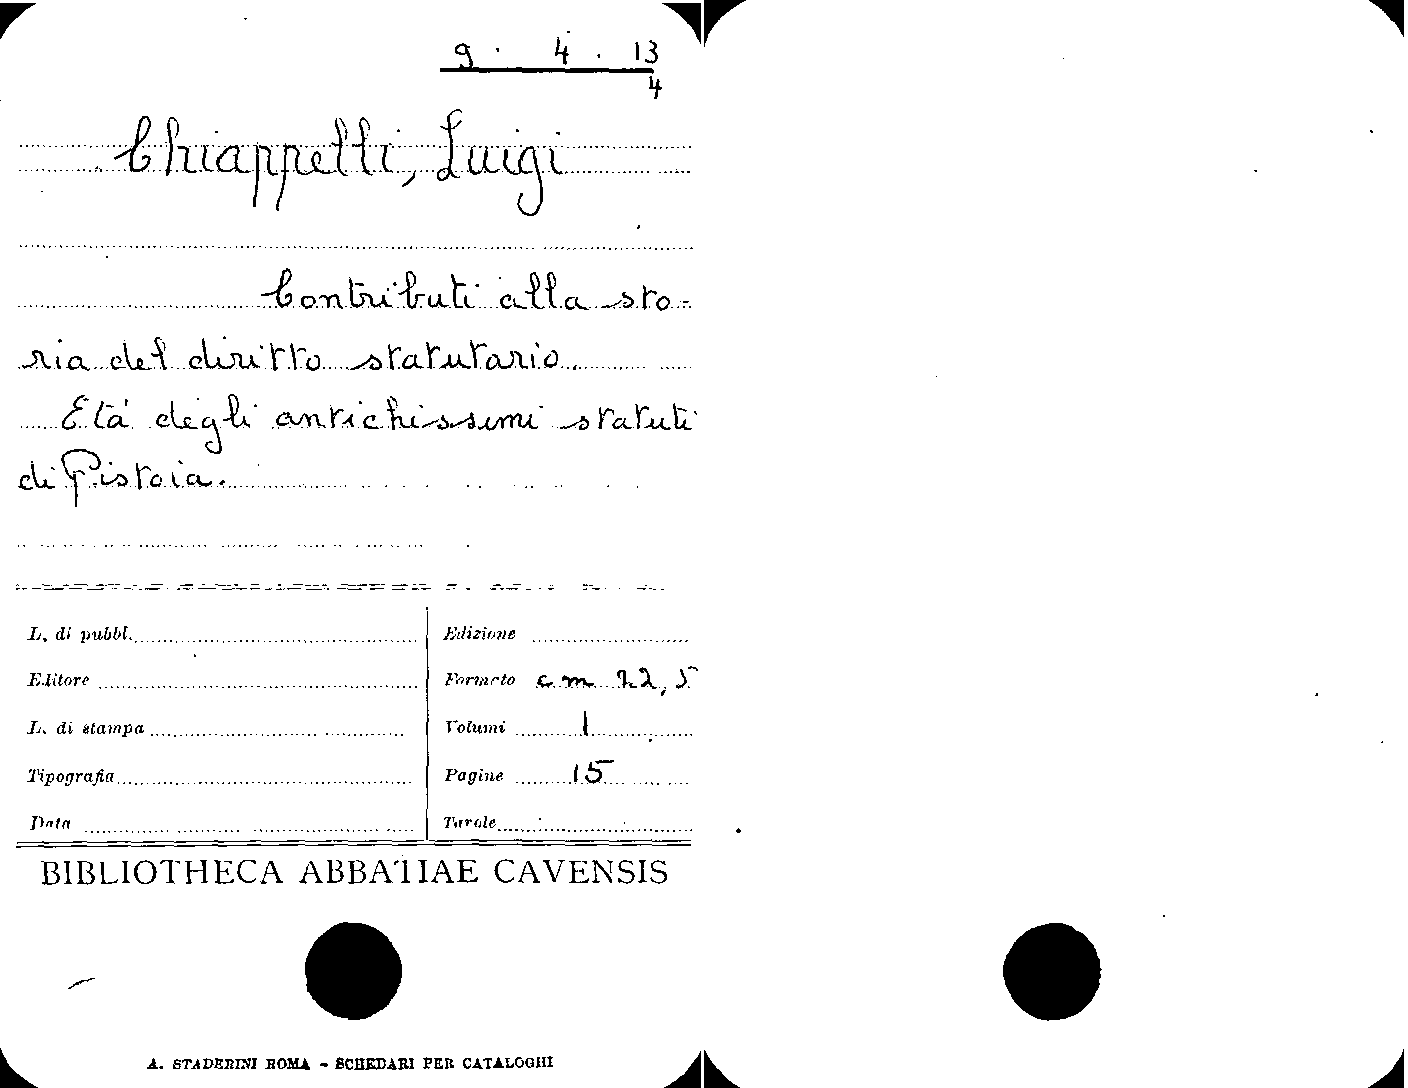 9 . 4 . 13
4
Chiappelli, Luigi
Contributi alla sto-
ria del diritto statutario.
Età degli antichissimi statuti
di Pistoia.
L. di pubbl.
Edizione
Editore
Formato cm 22,5
L. di stampa
Volumi 1
Tipografia
Pagine 15
Data
Tavole
BIBLIOTHECA ABBATIAE CAVENSIS
A. STADERINI ROMA - SCHEDARI PER CATALOGHI